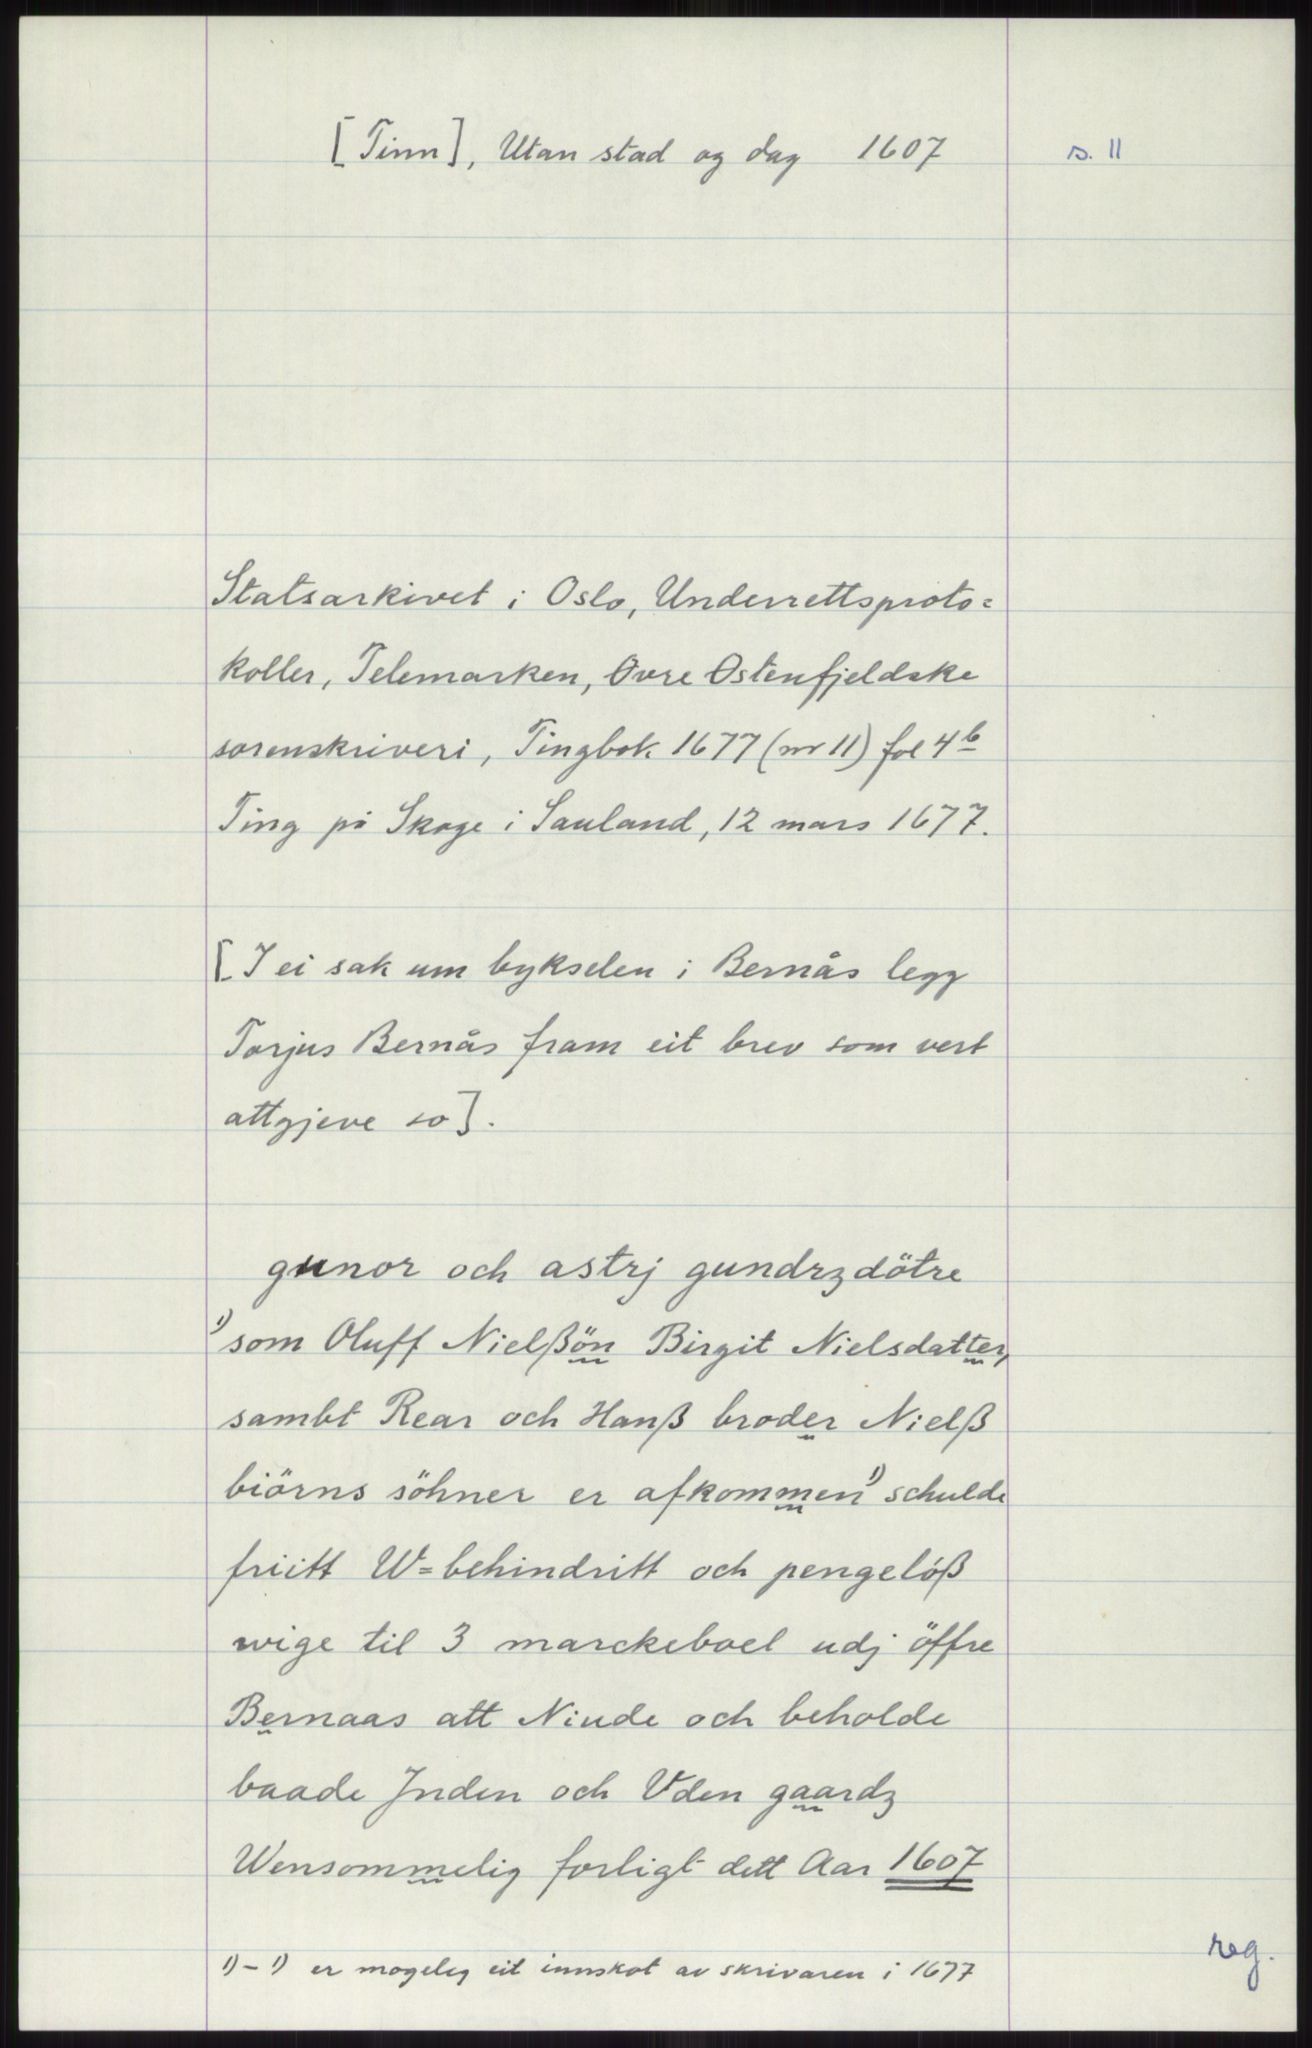 [Tinn], Utan stad og dag 1607 s. 11
Statsarkivet i Oslo, Underrettsproto=
koller, Telemarken, Øvre Østenfjeldske
sorenskriveri, Tingbok 1677 (nr 11) fol 4b
Ting på Skoge i Sauland, 12 mars 1677.
[I ei sak um bykselen i Bernås legg
Torjus Bernås fram eit brev som vert
attgjeve so].
gunor och astrj gundrzdötre
1) som Oluff Nielßön Birgit Nielsdatter,
sambt Rear och Hanß broder Nielß
biörns söhner er afkommen 1) schulde
friitt W=behindritt och pengelöß
wige til 3 marckeboel udj öffre
Bernaas att Niude och beholde
baade Jnden och Vden gaardz
Wensommelig forligt dett Aar 1607
1) - 1) er mogeleg eit innskot av skrivaren i 1677
reg.